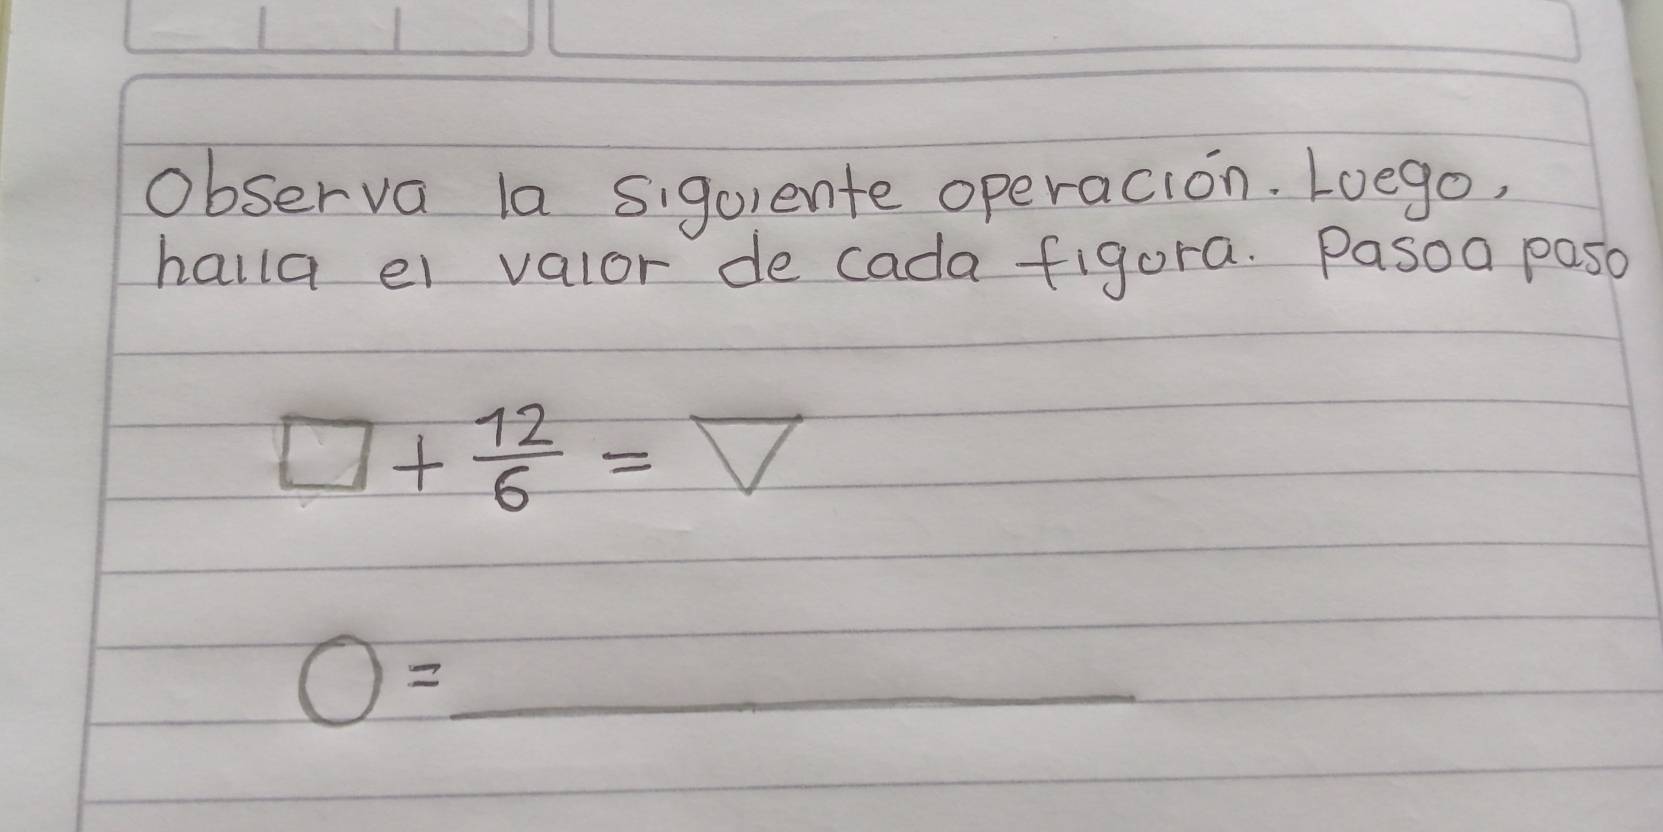 Observa la siguiente operación. Luego,
halla el valor de cada figura. Paso a paso
□ + 12/6 = ▽
○ = ____________